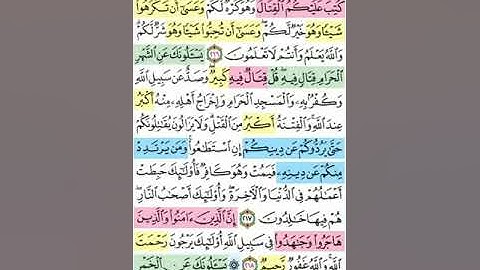 كُتِبَ عَلَيْكُمُ الْقِتَالُ وَهُوَ كُرْهٌ لَكُمْ وَعَسَىٰ أَن تَكْرَهُوا
شَيْئًا وَهُوَ خَيْرٌ لَكُمْ وَعَسَىٰ أَن تُحِبُّوا شَيْئًا وَهُوَ شَرٌّ لَكُمْ
وَاللَّهُ يَعْلَمُ وَأَنتُمْ لَا تَعْلَمُونَ ٢١٦ يَسْـَٔلُونَكَ عَنِ الشَّهْرِ
الْحَرَامِ قِتَالٍ فِيهِ قُلْ قِتَالٌ فِيهِ كَبِيرٌ وَصَدٌّ عَن سَبِيلِ اللَّهِ
وَكُفْرٌ بِهِ وَالْمَسْجِدِ الْحَرَامِ وَإِخْرَاجُ أَهْلِهِ مِنْهُ أَكْبَرُ
عِندَ اللَّهِ وَالْفِتْنَةُ أَكْبَرُ مِنَ الْقَتْلِ وَلَا يَزَالُونَ يُقَاتِلُونَكُمْ
حَتَّىٰ يَرُدُّوكُمْ عَن دِينِكُمْ إِنِ اسْتَطَاعُوا وَمَن يَرْتَدِدْ
مِنكُمْ عَن دِينِهِ فَيَمُتْ وَهُوَ كَافِرٌ فَأُولَٰئِكَ حَبِطَتْ
أَعْمَالُهُمْ فِي الدُّنْيَا وَالْآخِرَةِ وَأُولَٰئِكَ أَصْحَابُ النَّارِ
هُمْ فِيهَا خَالِدُونَ ٢١٧ إِنَّ الَّذِينَ ءَامَنُوا وَالَّذِينَ
هَاجَرُوا وَجَاهَدُوا فِي سَبِيلِ اللَّهِ أُولَٰئِكَ يَرْجُونَ رَحْمَتَ
اللَّهِ وَاللَّهُ غَفُورٌ رَحِيمٌ ٢١٨ يَسْـَٔلُونَكَ عَنِ الْخَمْرِ